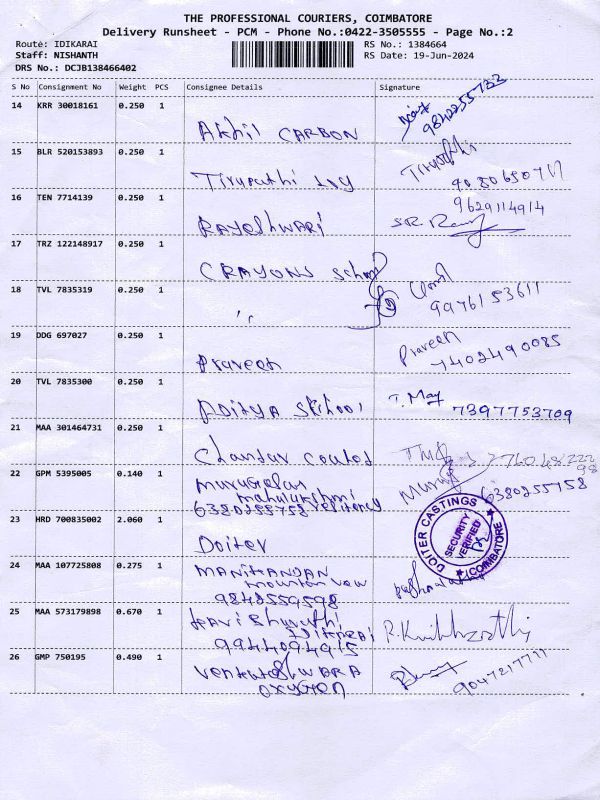 THE PROFESSIONAL COURIERS, COIMBATORE
Delivery Runsheet - PCM - Phone No.:0422-3505555 - Page No.:2
Route: IDIKARAI RS No.: 1384664
Staff: NISHANTH RS Date: 19-Jun-2024
DRS No.: DCJB138466402
S No Consignment No Weight PCS Consignee Details Signature
14 KRR 30018161 0.250 1
Akhil CARBON 9842255733
15 BLR 520153893 0.250 1
Tirupathi
16 TEN 7714139 0.250 1 9629114914
RAYeShwari S.R.
17 TRZ 122148917 0.250 1
CRAYONS School
18 TVL 7835319 0.250 1
9976153611
19 DDG 697027 0.250 1
Praveen Praveen 7402490085
20 TVL 7835300 0.250 1
7397753709
21 MAA 301464731 0.250 1
Chandar Coated
22 GPM 5395005 0.140 1 murugesan
6380255758 6380255758
23 HRD 700835002 2.060 1
Doiter
DOITER CASTINGS
SECURITY
VERIFIED
COIMBATORE
24 MAA 107725808 0.275 1
MANIKANDAN
9842559598
25 MAA 573179898 0.670 1
9944094915
26 GMP 750195 0.490 1
Venkateshwara
oxygen